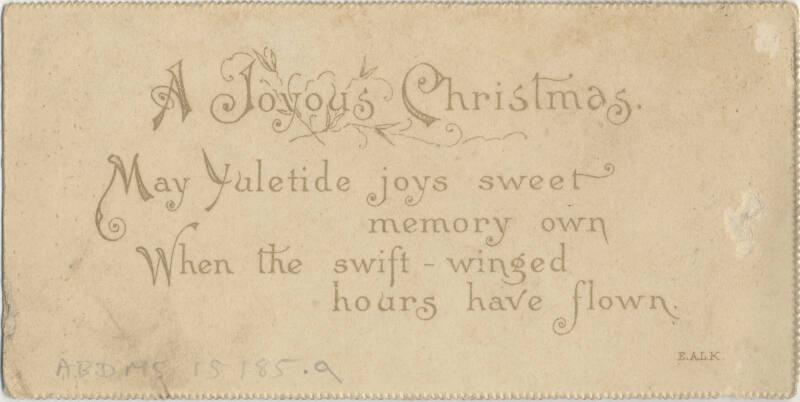 A Joyous Christmas.
May Yuletide joys sweet
memory own
When the swift-winged
hours have flown.
E.A.L.K.
ABDMS 15185.9